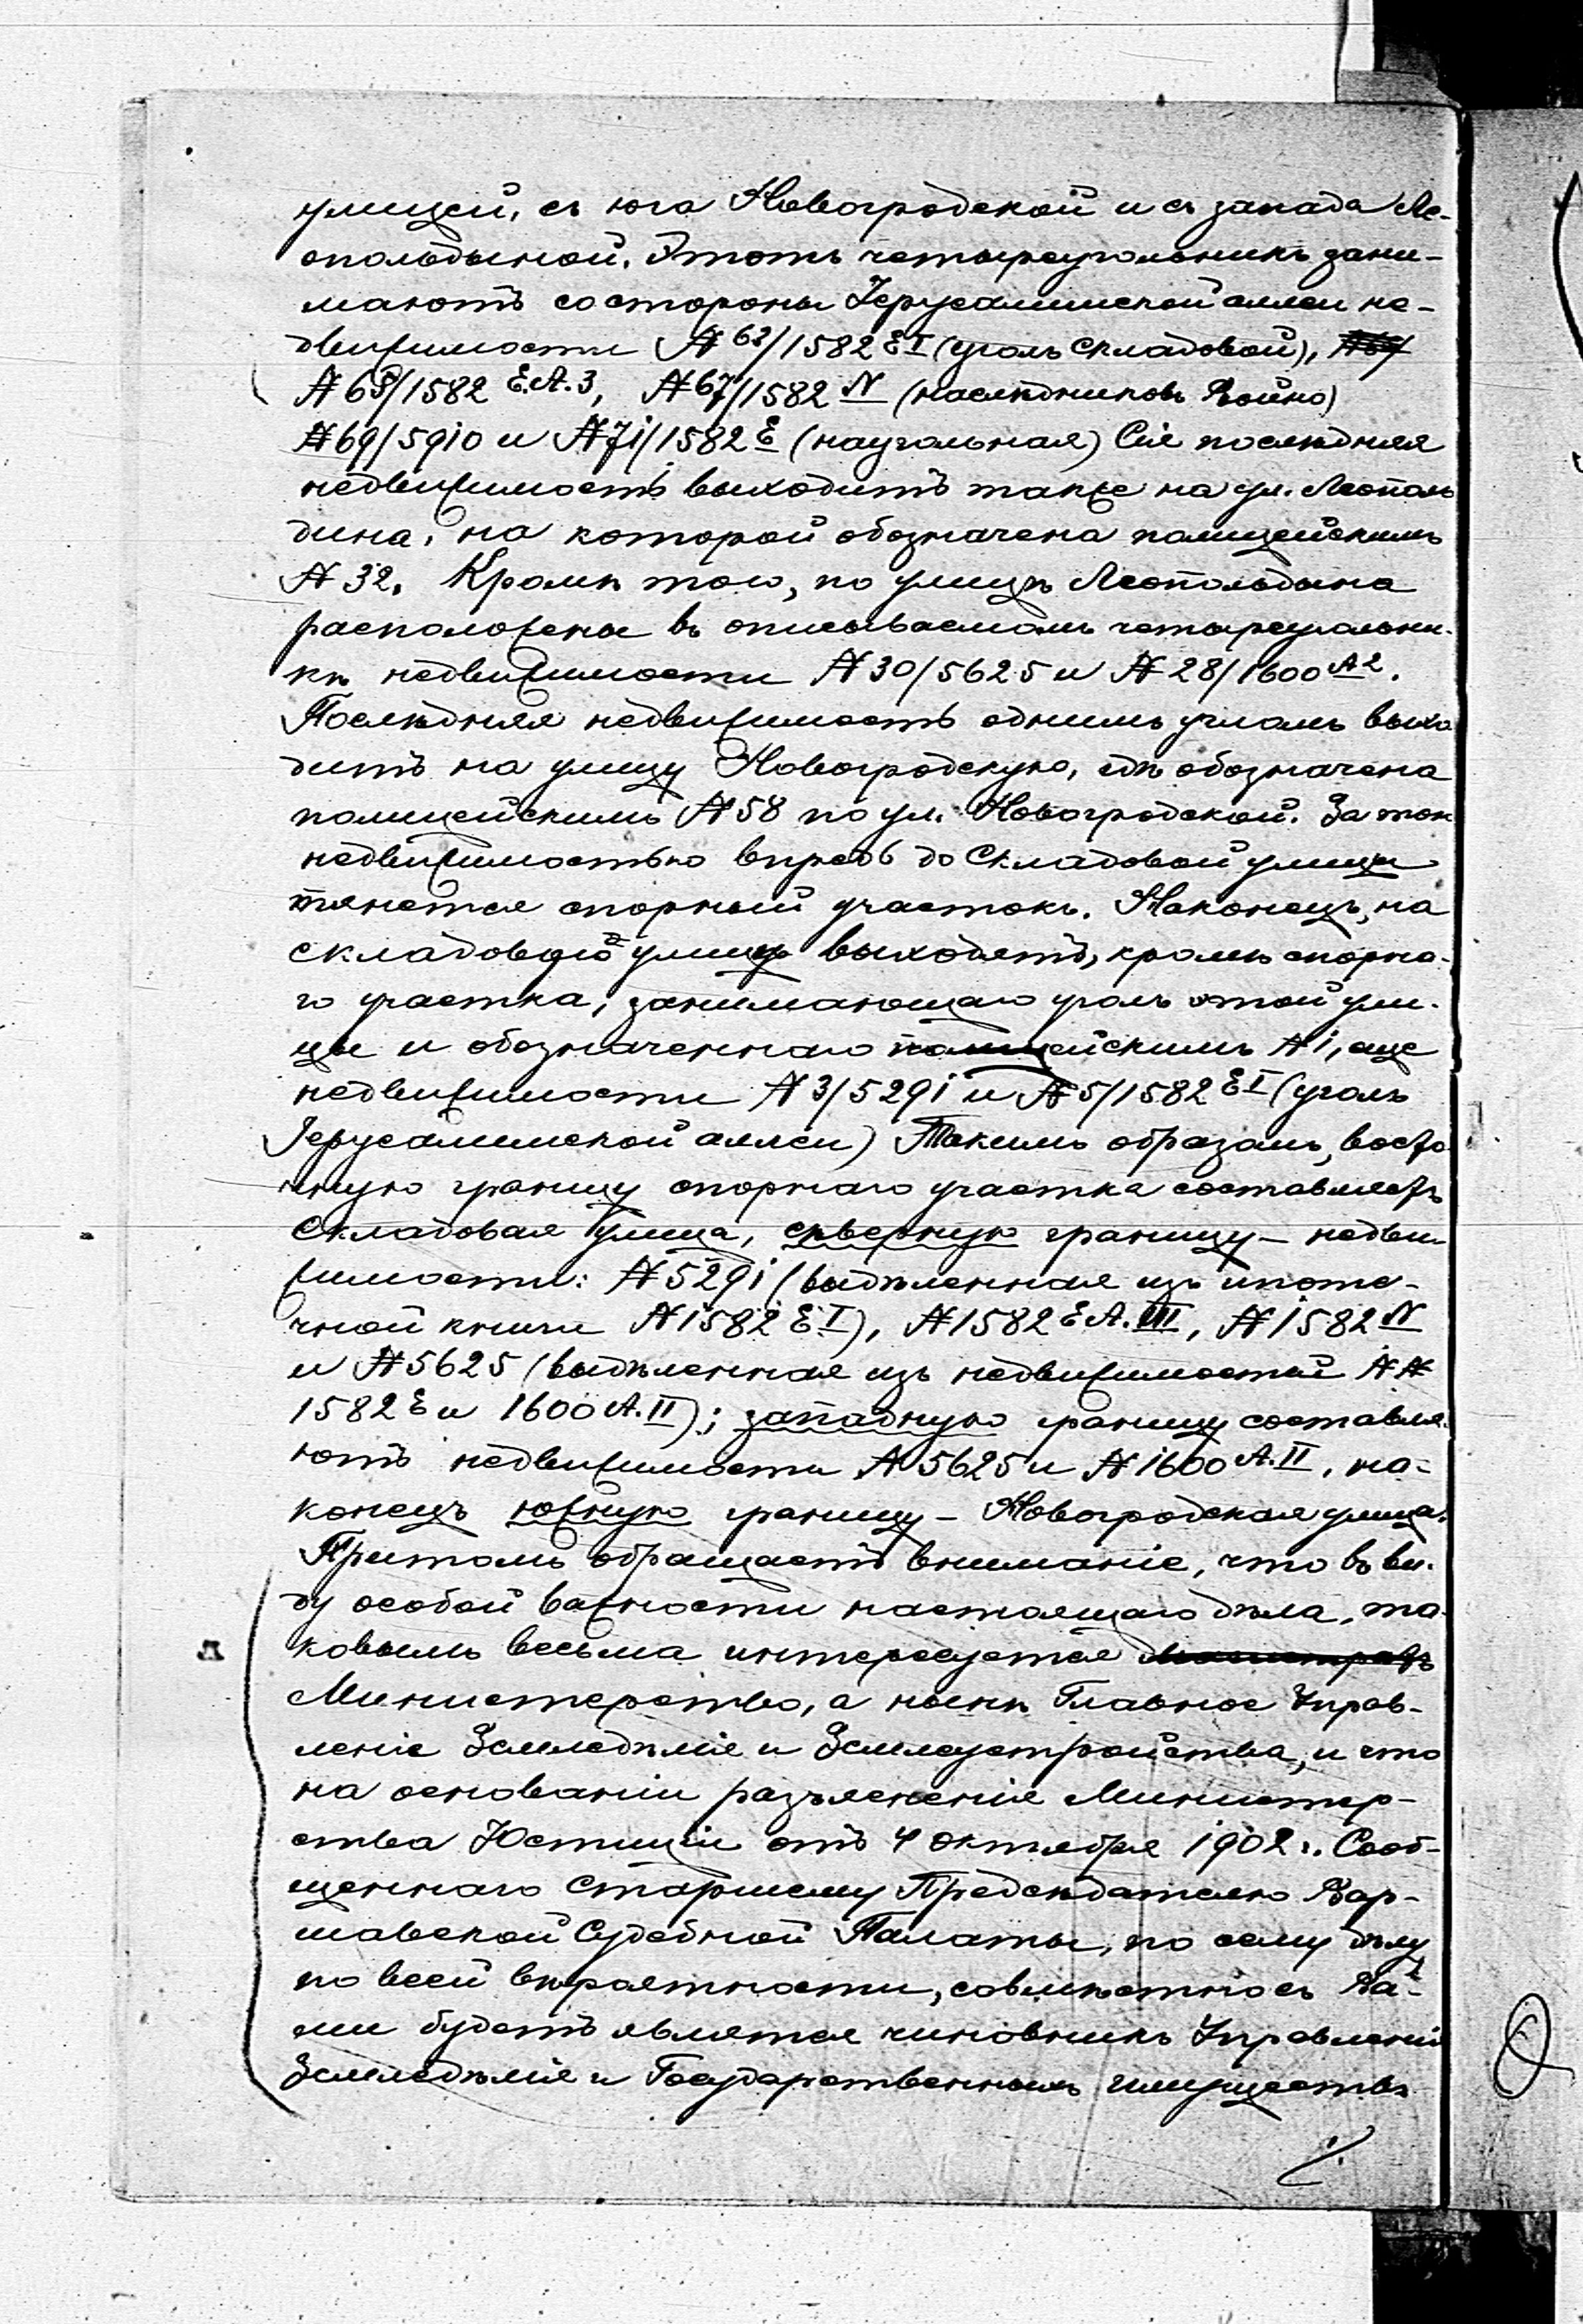 улицей, съ юга Новогродской и съ запада Ле-
опольдиной. Этотъ четыреугольникъ зани-
маютъ со стороны Іерусалимской аллеи не-
движимости № 63/1582 Е I (уголъ Складовой),
№ 65/1582 Е.А.3, № 67/1582 N (наслѣдниковъ Войно)
№ 69/5910 и № 71/1582 Е (наугольная) Сія послѣдняя
недвижимость выходитъ также на ул. Леополь
дина, на которой обозначена полицейскимъ
№ 32. Кромѣ того, по улицѣ Леопольдина
расположены въ описываемомъ четыреугольни-
кѣ недвижимости № 30/5625 и № 28/1600 А2.
Послѣдняя недвижимость однимъ угломъ выхо
дитъ на улицу Новогродскую, гдѣ обозначена
полицейскимъ № 58 по ул. Новогродской. За тою
недвижимостью впредь до Складовой улицы
тянется спорный участокъ. Наконецъ, на
складовую улицу выходятъ, кромѣ спорна-
го участка, занимающаго уголъ этой ули-
цы и обозначеннаго полицейскимъ № 1, еще
недвижимости № 3/5291 и № 5/1582 Е I (уголъ
Іерусалимской аллеи) Такимъ образомъ, восто
чную границу спорнаго участка составляетъ
Складовая улица, сѣверную границу – недви-
жимости: № 5291 (выдѣленная изъ ипоте-
чной книги № 1582 Е I), № 1582 Е А. III, № 1582 N
и № 5625 (выдѣленная изъ недвижимостей №№
1582 Е и 1600 А. II); западную границу составля-
ютъ недвижимости № 5625 и № 1600 А. II, на-
конецъ южную границу – Новогродская улица.
Притомъ обращаетъ вниманіе, что въ ви-
ду особой важности настоящаго дѣла, та-
ковымъ весьма интересуется
Министерство, а нынѣ Главное Управ-
леніе Земледѣлія и Землеустройства, и что
на основаніи разъясненія Министер-
ства Юстиціи отъ 4 октября 1902 г. Сооб-
щеннаго Старшему Предсѣдателю Вар-
шавской Судебной Палаты, по сему дѣлу
по всей вѣроятности, совмѣстно съ Ва-
ми будетъ являться чиновникъ Управленія
Земледѣлія и Государственныхъ имуществъ